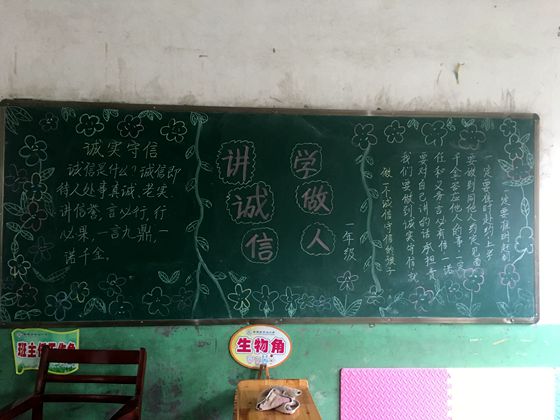 诚实守信
诚信是什么？诚信即
待人处事真诚、老实、
讲信誉，言必行，行
必果，一言九鼎，一
诺千金。
讲诚信
学做人
一年级
一定要准时赴约
一定要准时赴约上学
要做到同他人约定见面
千金答应他人的事一
任和义务言必有信一诺
要对自己讲的话承担责
我们要做到诚实守信
做一个诚信守信的孩子
班主任工作角
生物角